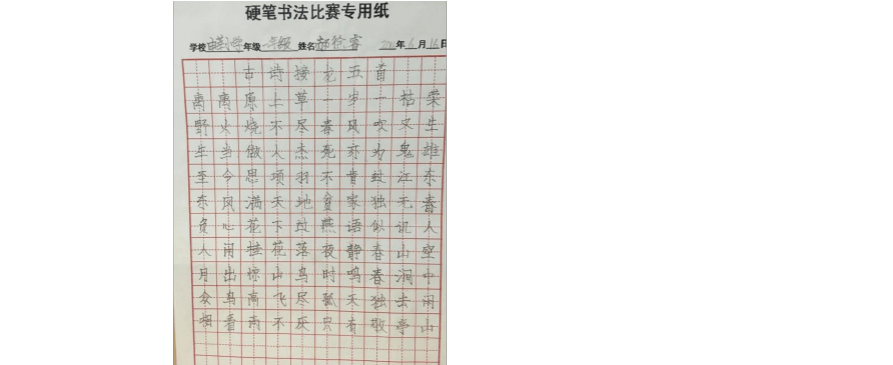 硬笔书法比赛专用纸
学校 小学 年级 一年级 姓名 郝 睿 年6月16日
古诗接龙五首
离离原上草一岁一枯荣
野火烧不尽春风吹又生
生当做人杰死亦为鬼雄
至今思项羽不肯过江东
东风满天地贫家独无春
负心花下过燕语似讥人
人闲桂花落夜静春山空
月出惊山鸟时鸣春涧中
众鸟高飞尽孤天独去闲
相看两不厌只有敬亭山